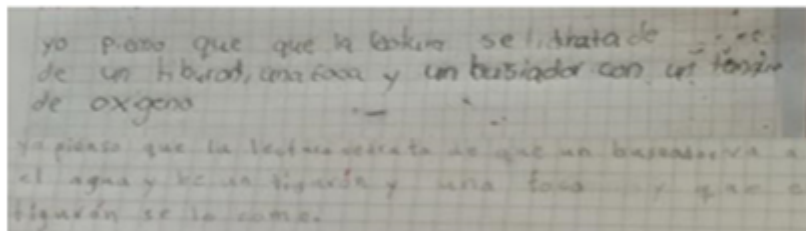 yo pieno que que la lectura se tratade
de un tiburon, una foca y un busiador con un tanque
de oxigeno
yo pienso que la lectura se trata de que un buseador va a
el agua y ve un tiburón y una foca y que e
tiburón se lo come.